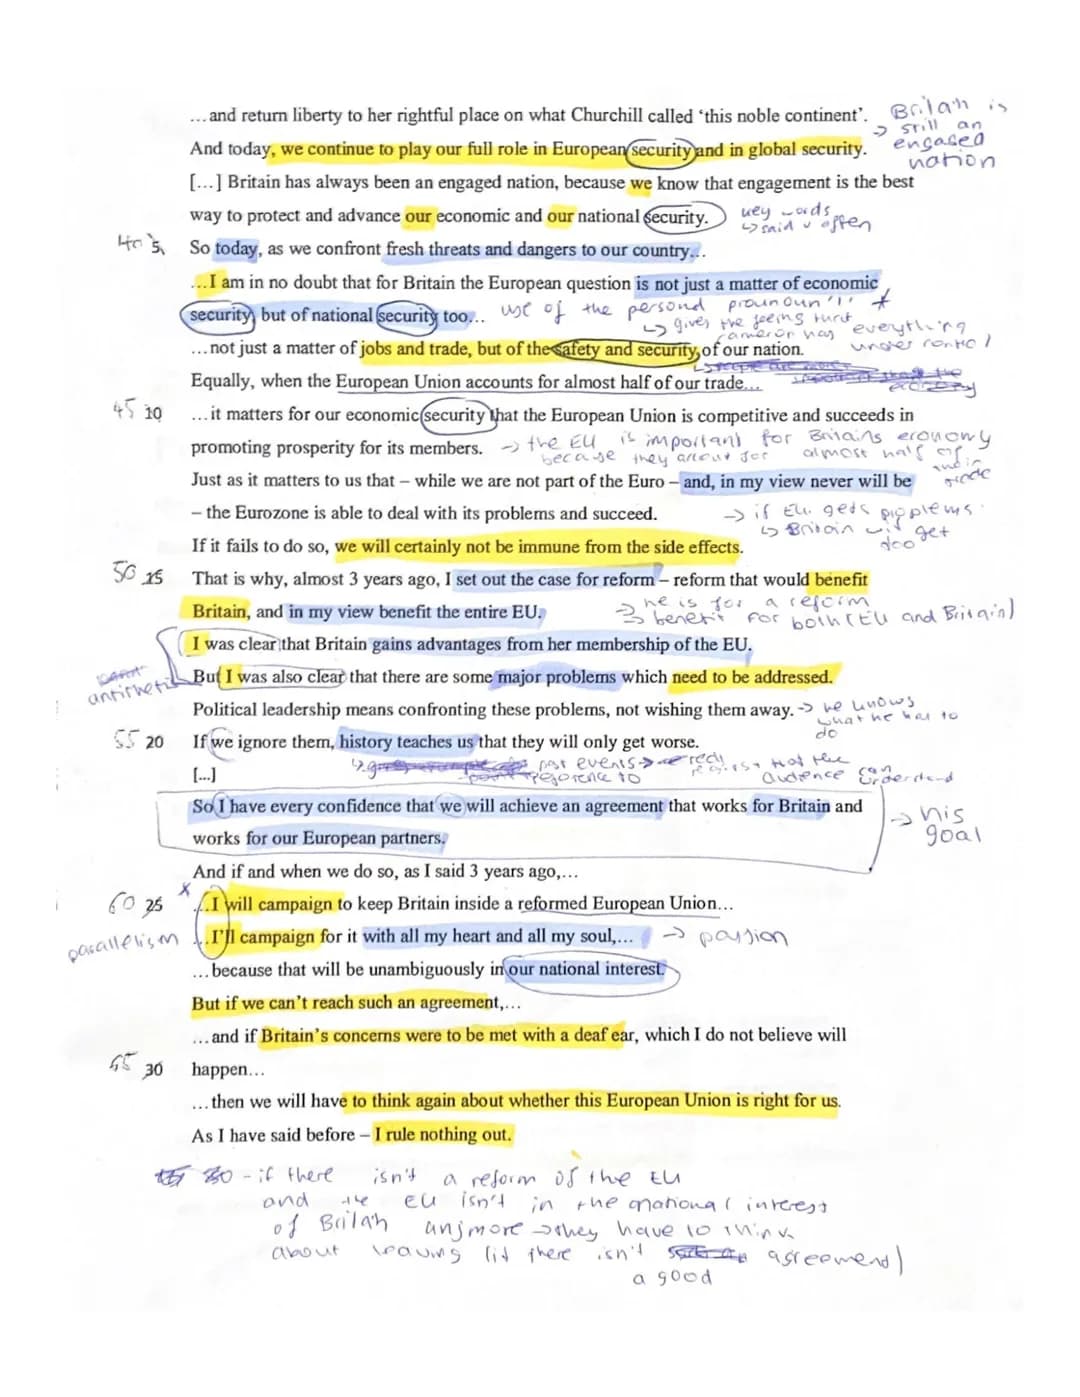 ...and return liberty to her rightful place on what Churchill called ‘this noble continent’.
Britain is
→ still an
engaged
nation
And today, we continue to play our full role in European security and in global security.
[...] Britain has always been an engaged nation, because we know that engagement is the best
way to protect and advance our economic and our national security.
key words
↳ said v often
40 5 So today, as we confront fresh threats and dangers to our country...
...I am in no doubt that for Britain the European question is not just a matter of economic
security, but of national security too...
use of the personal prounoun 'I' *
↳ gives the feeling that
cameron has everything
under control
...not just a matter of jobs and trade, but of the safety and security of our nation.
Equally, when the European Union accounts for almost half of our trade...
45 10 ...it matters for our economic security that the European Union is competitive and succeeds in
promoting prosperity for its members.
→ the EU is important for Britains economy
because they account for almost half of
trade
Just as it matters to us that – while we are not part of the Euro – and, in my view never will be
– the Eurozone is able to deal with its problems and succeed.
→ if EU gets problems
↳ Britain will get
too
If it fails to do so, we will certainly not be immune from the side effects.
50 15 That is why, almost 3 years ago, I set out the case for reform – reform that would benefit
Britain, and in my view benefit the entire EU.
→ he is for a reform
→ benefit for both (EU and Britain)
I was clear that Britain gains advantages from her membership of the EU.
antithetis
But I was also clear that there are some major problems which need to be addressed.
Political leadership means confronting these problems, not wishing them away.
→ he knows
what he has to
do
55 20 If we ignore them, history teaches us that they will only get worse.
[...]
past events →
reference to
that the
audience can
understand
So I have every confidence that we will achieve an agreement that works for Britain and
works for our European partners.
→ his
goal
And if and when we do so, as I said 3 years ago,...
x
60 25 ...I will campaign to keep Britain inside a reformed European Union...
parallelism
...I’ll campaign for it with all my heart and all my soul,...
→ passion
...because that will be unambiguously in our national interest.
But if we can’t reach such an agreement,...
...and if Britain’s concerns were to be met with a deaf ear, which I do not believe will
65 30 happen...
...then we will have to think again about whether this European Union is right for us.
As I have said before – I rule nothing out.
30 - if there isn't a reform of the EU
and the EU isn't in the national interest
of Britain anymore → they have to think
about leaving (if there isn't agreement)
a good